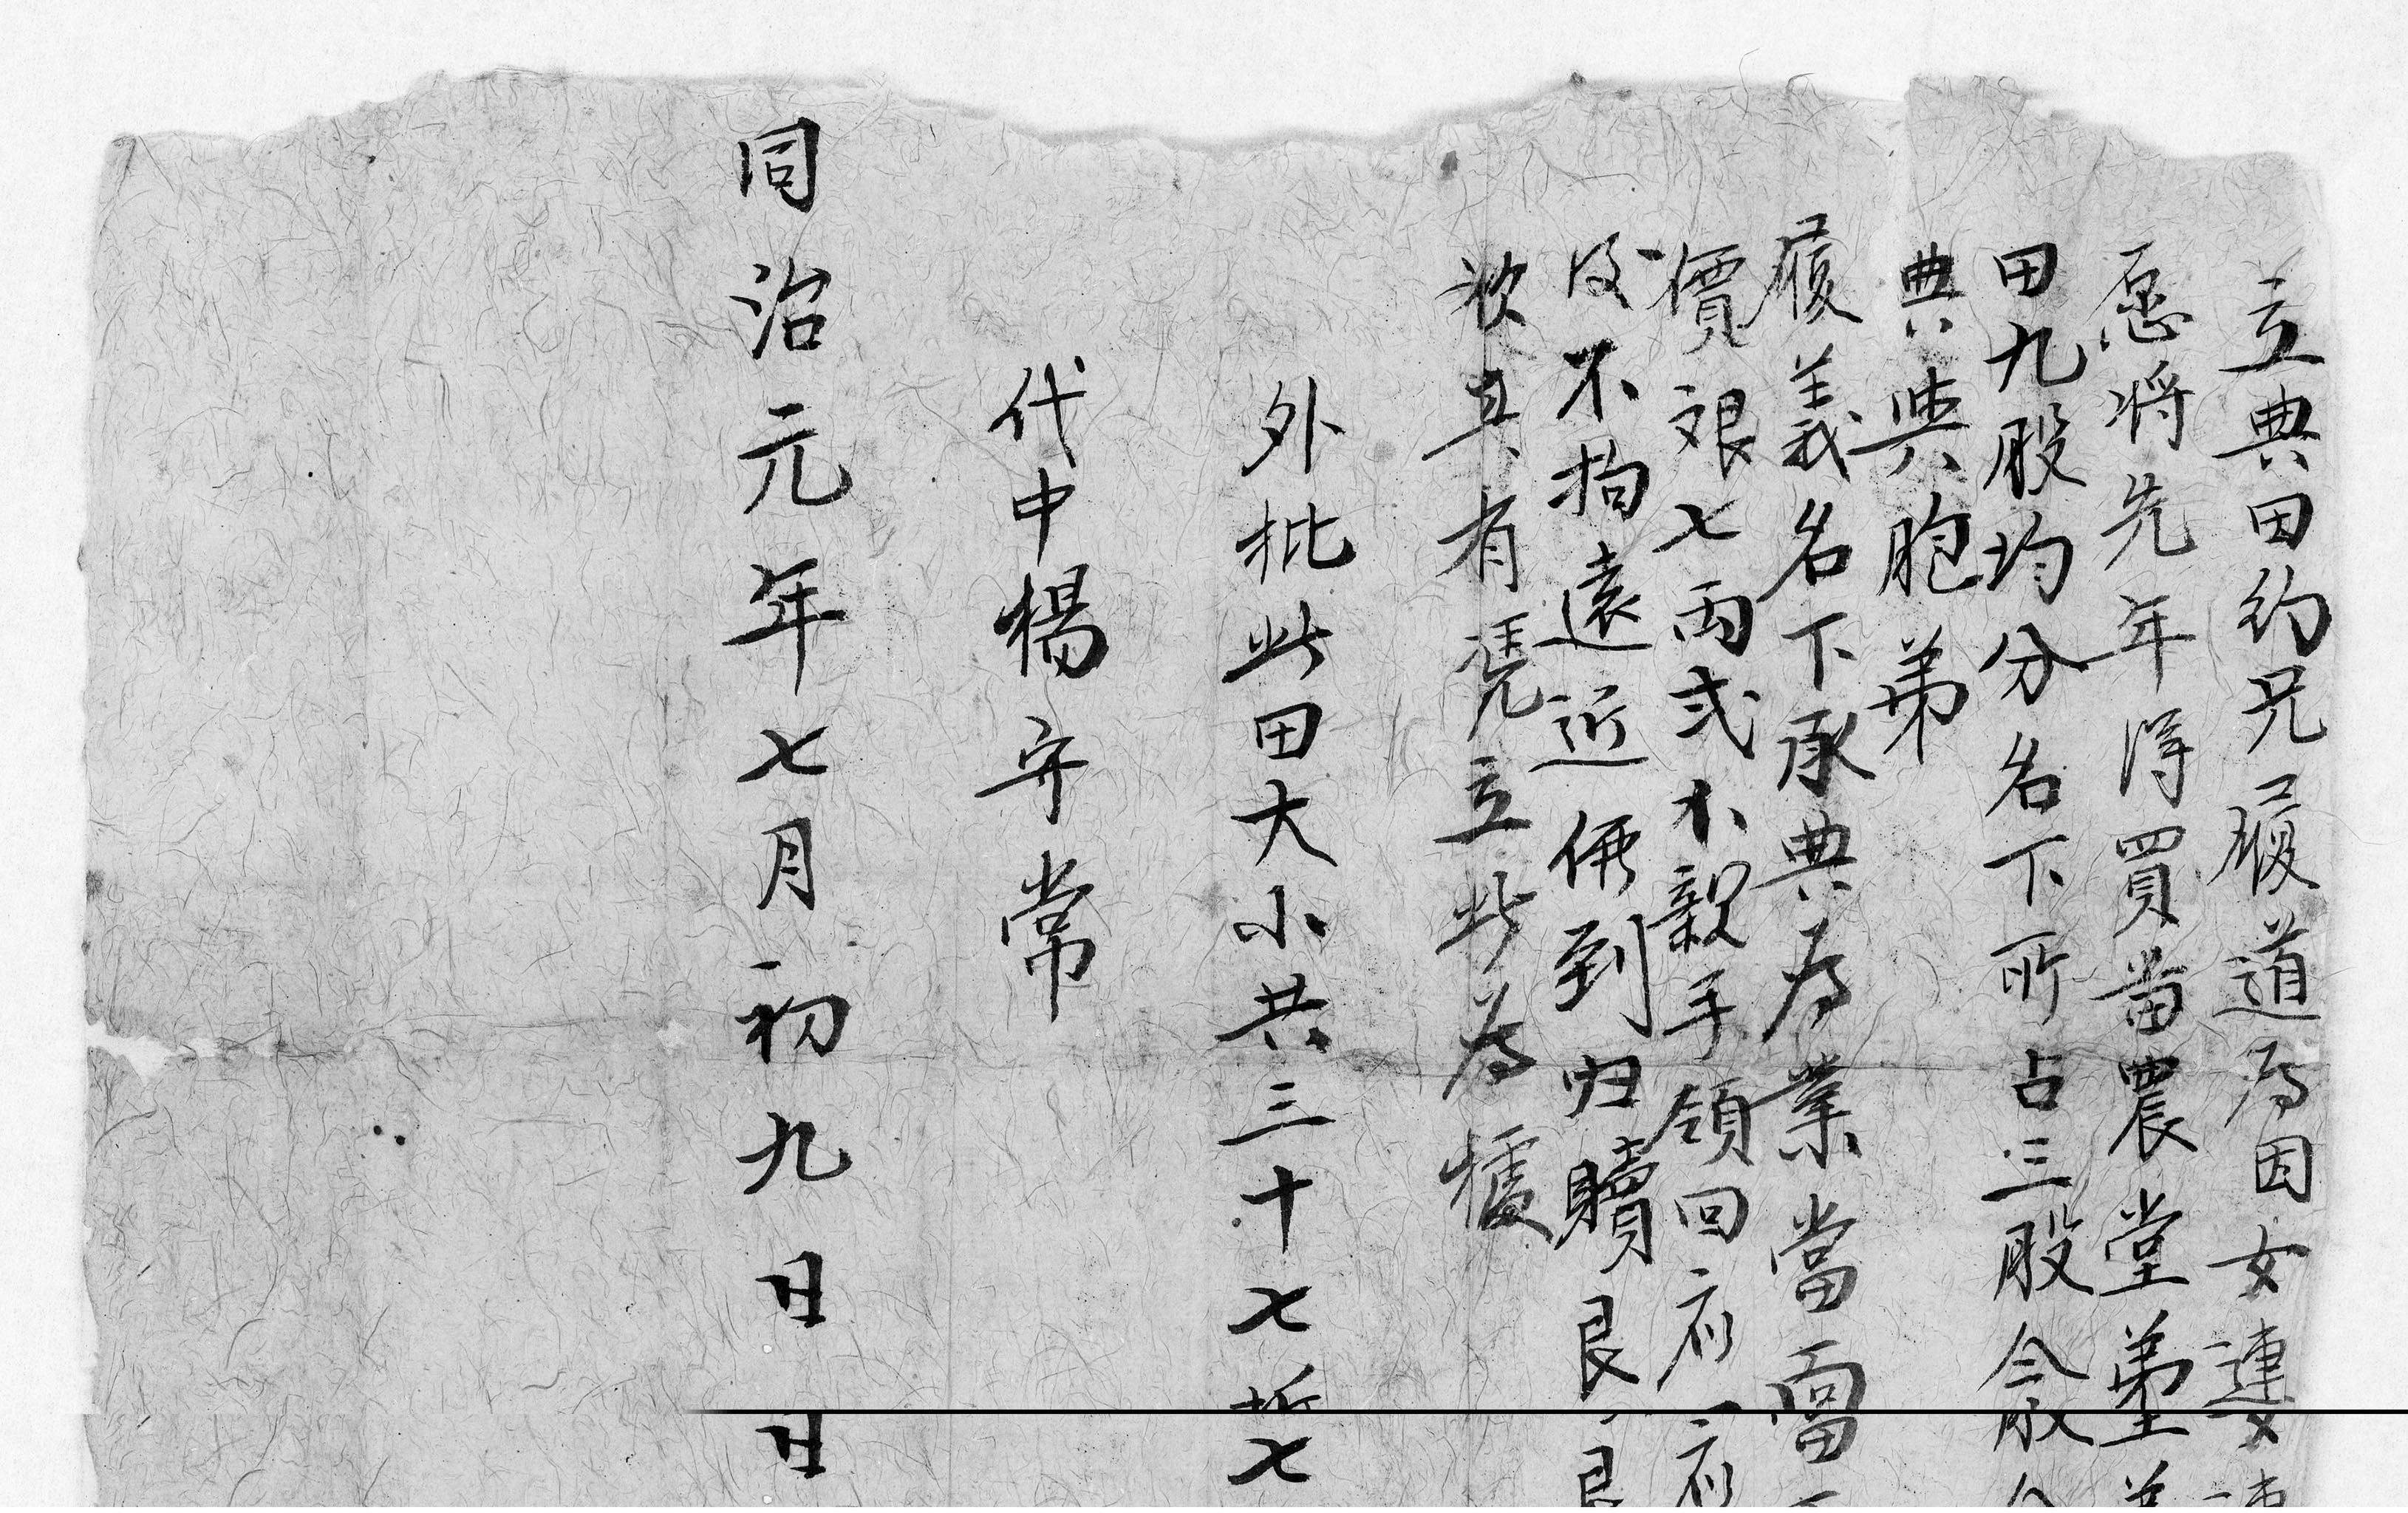 立典田約兄履道為因女連
愿將先年得買當農堂弟
田九股均分名下所占三股今
典與胞弟
履義名下承典為業當面
價艮七兩弍小親手領回
及不拘遠近俩到归贖艮
欲具有凭立此為據
外批此田大小共三十七坵
代中楊守常
同治元年七月初九日